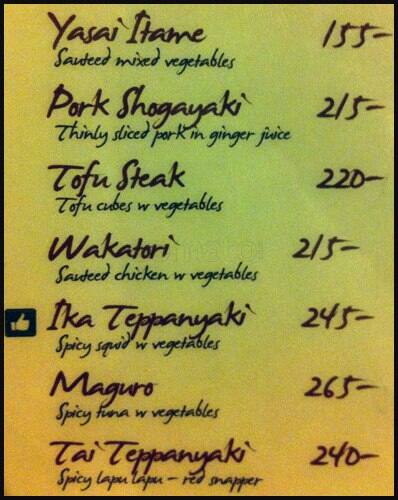 Yasai Itame 155-
Sauteed mixed vegetables
Pork Shogayaki 215-
Thinly sliced pork in ginger juice
Tofu Steak 220-
Tofu cubes w vegetables
Wakatori 215-
Sauteed chicken w vegetables
Ika Teppanyaki 245-
Spicy squid w vegetables
Maguro 265-
Spicy tuna w vegetables
Tai Teppanyaki 240-
Spicy lapu lapu - red snapper